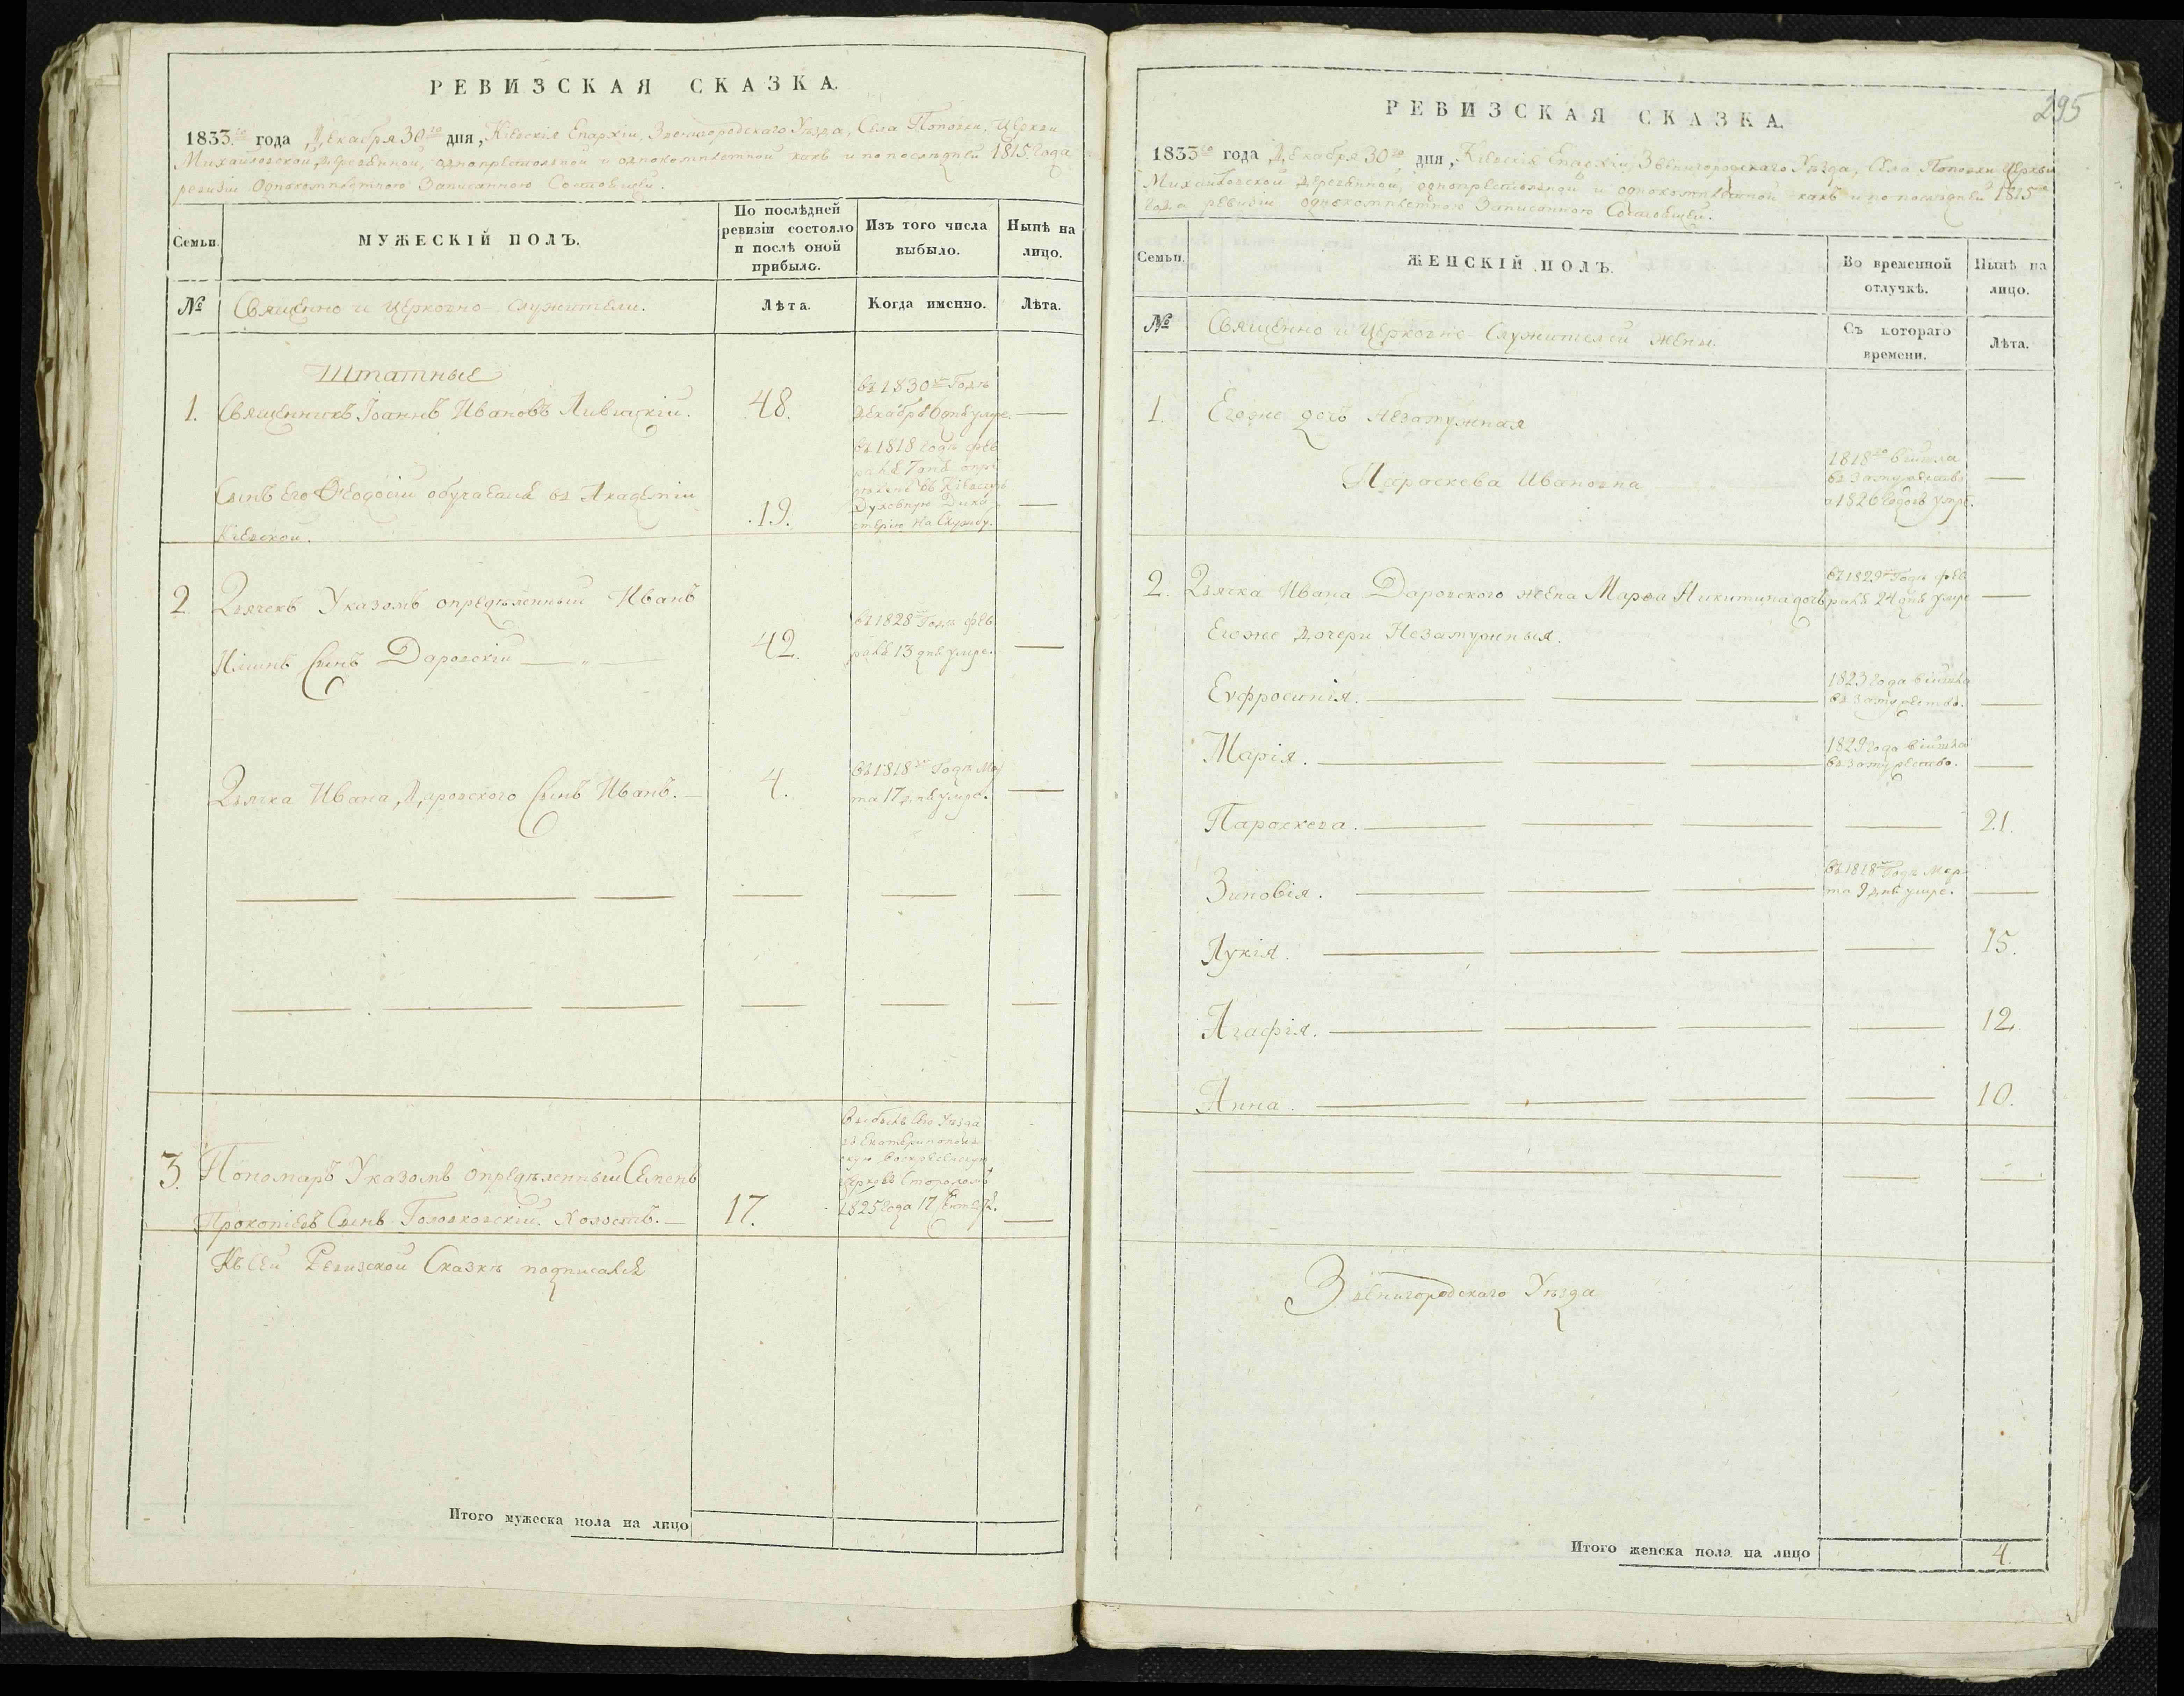 РЕВИЗСКАЯ СКАЗКА.
1833го года Декабря 30го дня, Кіевскія Епархіи, Звенигородскаго Уѣзда, Села Поповки, Церкви
Михайловской деревянной, однопрестольной и однокомплетной какъ и по послѣдней 1815 года
ревизіи однокомплетною Записанною Состоящей.
Семьи.
МУЖЕСКІЙ ПОЛЪ.
По послѣдней
ревизіи состояло
и послѣ оной
прибыло.
Изъ того числа
выбыло.
Нынѣ на
лицо.
№
Священно и Церковно Служители.
Лѣта.
Когда именно.
Лѣта.
Штатные
1.
Священникъ Іоаннъ Ивановъ Ливицкій.
48.
въ 1830 Годѣ
Декабря 6 дня умре.
Сынъ его Ѳеодосій обучаЕлся въ Академіи
Кіевской.
.19.
въ 1818 годѣ Фев
раля 7 дня опре
дѣленъ въ Кіевскую
Духовную Дика
стерію На Службу.
2.
Дьячекъ Указомъ опредѣленный Иванъ
Сынъ Даровскій
42.
въ 1828 Годѣ Фев
раля 13 дня умре.
Дьячка Ивана Даровского Сынъ Иванъ.
4.
въ 1818 Годѣ Мар
та 17 дня умре.
3.
Пономаръ Указомъ опредѣленный Семенъ
Прокопіевъ Сынъ Головковскій. Холостъ.
17.
Выбылъ Сего Уѣзда
въ Екатеринополь
скую Воскресенскую
Церковь
1825 года 17 Сентября.
Къ Сей Ревизской Сказкѣ подписался
Итого мужеска пола на лицо
295
РЕВИЗСКАЯ СКАЗКА.
1833го года Декабря 30го дня, Кіевскія Епархіи, Звенигородскаго Уѣзда, Села Поповки Церкви
Михайловской деревянной, однопрестольной и однокомплетной какъ и по послѣдней 1815
года ревизіи однокомплетною Записанною Состоящей.
Семьи.
ЖЕНСКІЙ ПОЛЪ.
Во временной
отлучкѣ.
Нынѣ на
лицо.
№
Священно и Церковно-Служителей жены.
Съ котораго
времени.
Лѣта.
1.
Егоже дочь Незамужная
Параскева Ивановна
1818го вышла
въ Замужество
а 1826 годовъ умре.
2.
Дьячка Ивана Даровского жена Марѳа Никитина дочь
въ 1829 Годѣ Фев
раля 24 дня умре
Егоже дочери Незамужныя.
Евфросинія.
1823 года вышла
въ Замужество.
Марія.
1829 года вышла
въ Замужество.
Параскева.
21.
Зиновія.
въ 1818 Годѣ Мар
та 9 дня умре.
Лукія.
15.
Агафія.
12.
Анна.
10.
Звенигородскаго Уѣзда
Итого женска пола на лицо
4.